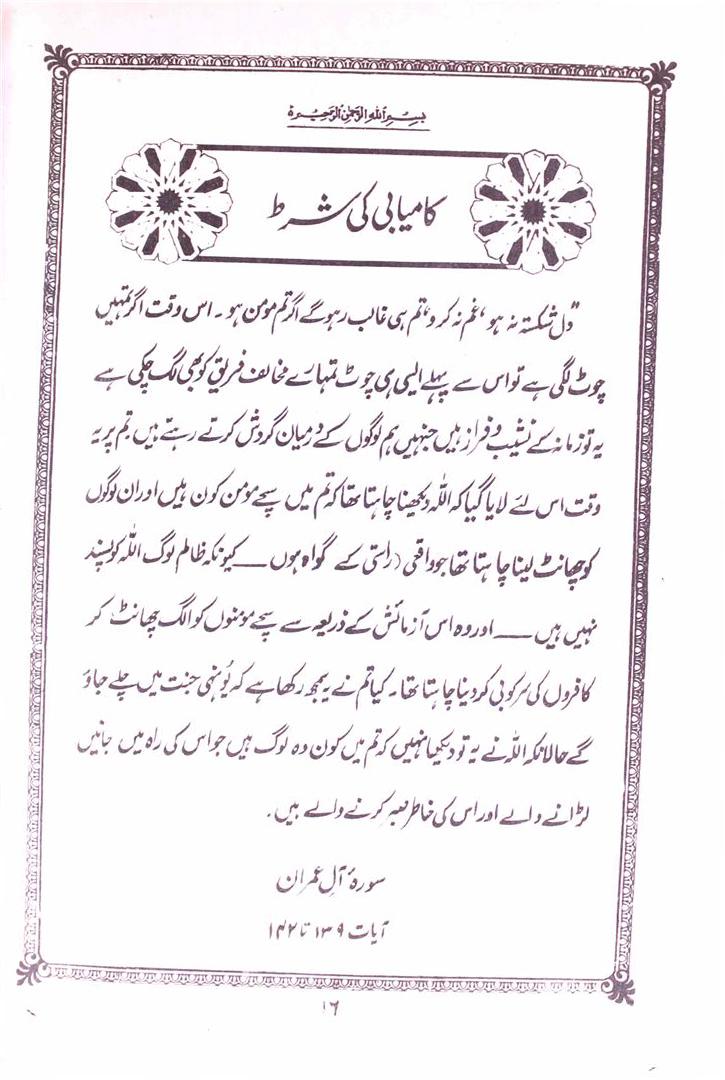 بِسْمِ اللهِ الرَّحْمٰنِ الرَّحِیْمِ ہ
کامیابی کی شرط
"دل شکستہ نہ ہو، غم نہ کرو، تم ہی غالب رہو گے اگر تم مومن ہو۔ اس وقت اگر تمہیں
چوٹ لگی ہے تو اس سے پہلے ایسی ہی چوٹ تمہارے مخالف فریق کو بھی لگ چکی ہے
یہ تو زمانہ کے نشیب و فراز ہیں جنہیں ہم لوگوں کے درمیان گردش کرتے رہتے ہیں۔ تم پر یہ
وقت اس لئے لایا گیا کہ اللہ دیکھنا چاہتا تھا کہ تم میں سچے مومن کون ہیں اور ان لوگوں
کو چھانٹ لینا چاہتا تھا جو واقعی (راستی کے گواہ ہوں ـــــ کیونکہ ظالم لوگ اللہ کو پسند
نہیں ہیں ـــــ اور وہ اس آزمائش کے ذریعہ سے سچے مومنوں کو الگ چھانٹ کر
کافروں کی سرکوبی کر دینا چاہتا تھا۔ کیا تم نے یہ سمجھ رکھا ہے کہ یُونہی جنت میں چلے جاؤ
گے حالانکہ اللہ نے یہ تو دیکھا نہیں کہ تم میں کون وہ لوگ ہیں جو اس کی راہ میں جانیں
لڑانے والے اور اس کی خاطر صبر کرنے والے ہیں۔
سورۂ آلِ عمران
آیات ۱۳۹ تا ۱۴۲
۱۶